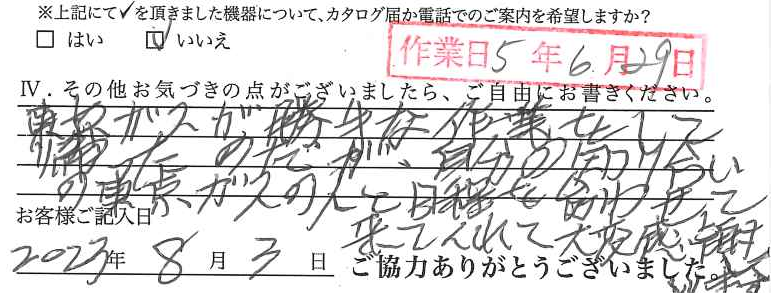 ※上記にて✓を頂きました機器について、カタログ届か電話でのご案内を希望しますか?
□ はい ☑ いいえ
作業日 5 年 6 月 29 日
Ⅳ．その他お気づきの点がございましたら、ご自由にお書きください。
東京ガスが、勝手な作業をして
帰ったのですが、自分の知り合い
の東京ガスの人と日程を合わせて
来てくれて大変感謝
お客様ご記入日
2023 年 8 月 3 日
ご協力ありがとうございました。